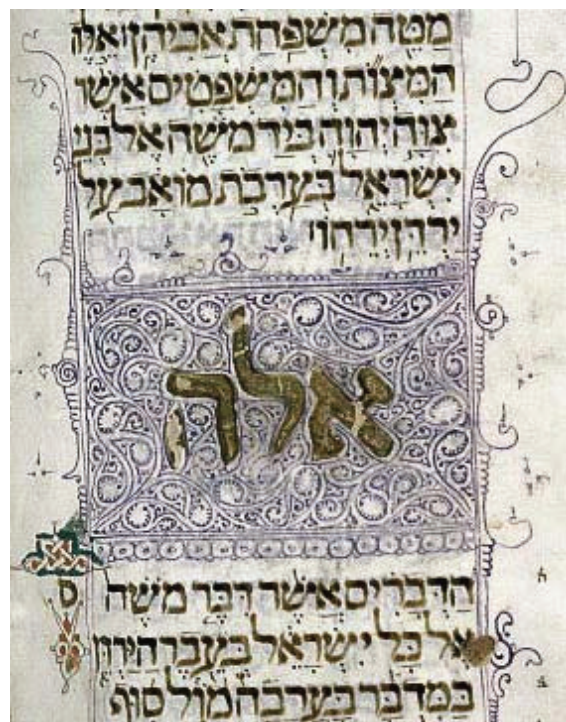 מטה משפחת אביהן אלה
המצות והמשפטים אשר
צוה יהוה ביד משה אל בני
ישראל בערבת מואב על
ירדן ירחו
אלה
הדברים אשר דבר משה
אל כל ישראל בעבר הירדן
במדבר בערבה מול סוף